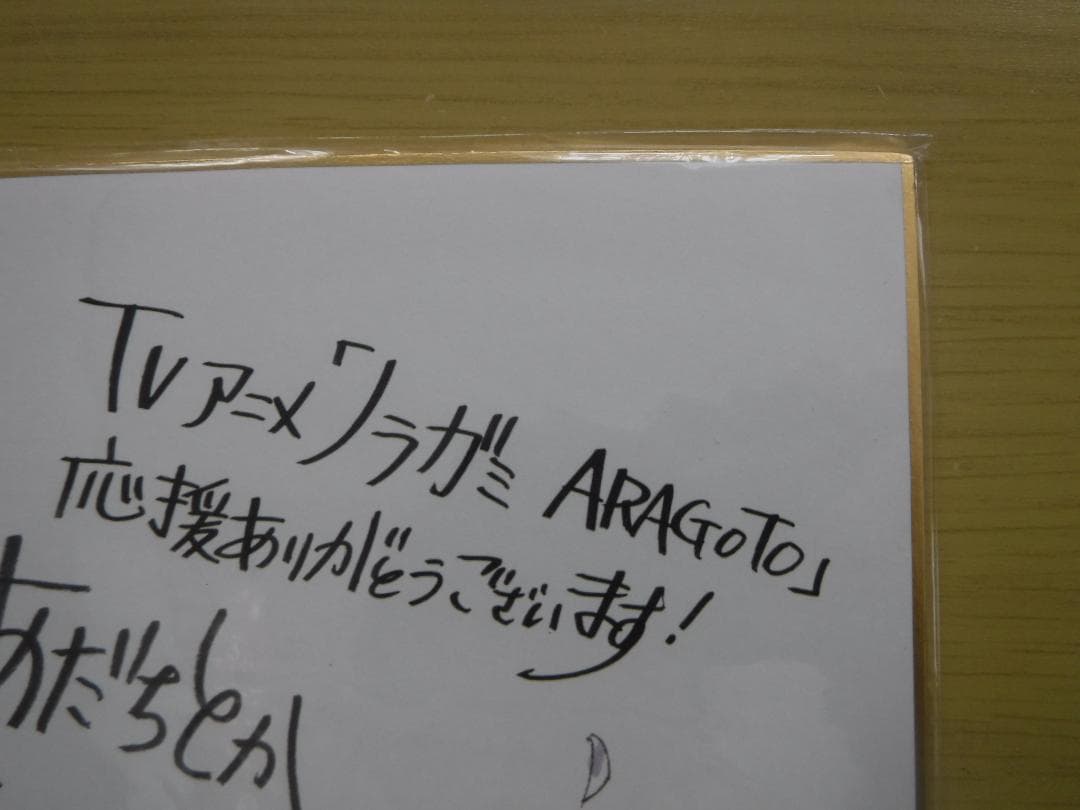 TVアニメ「ノラガミ ARAGOTO」
応援ありがとうございます!
あだちとか